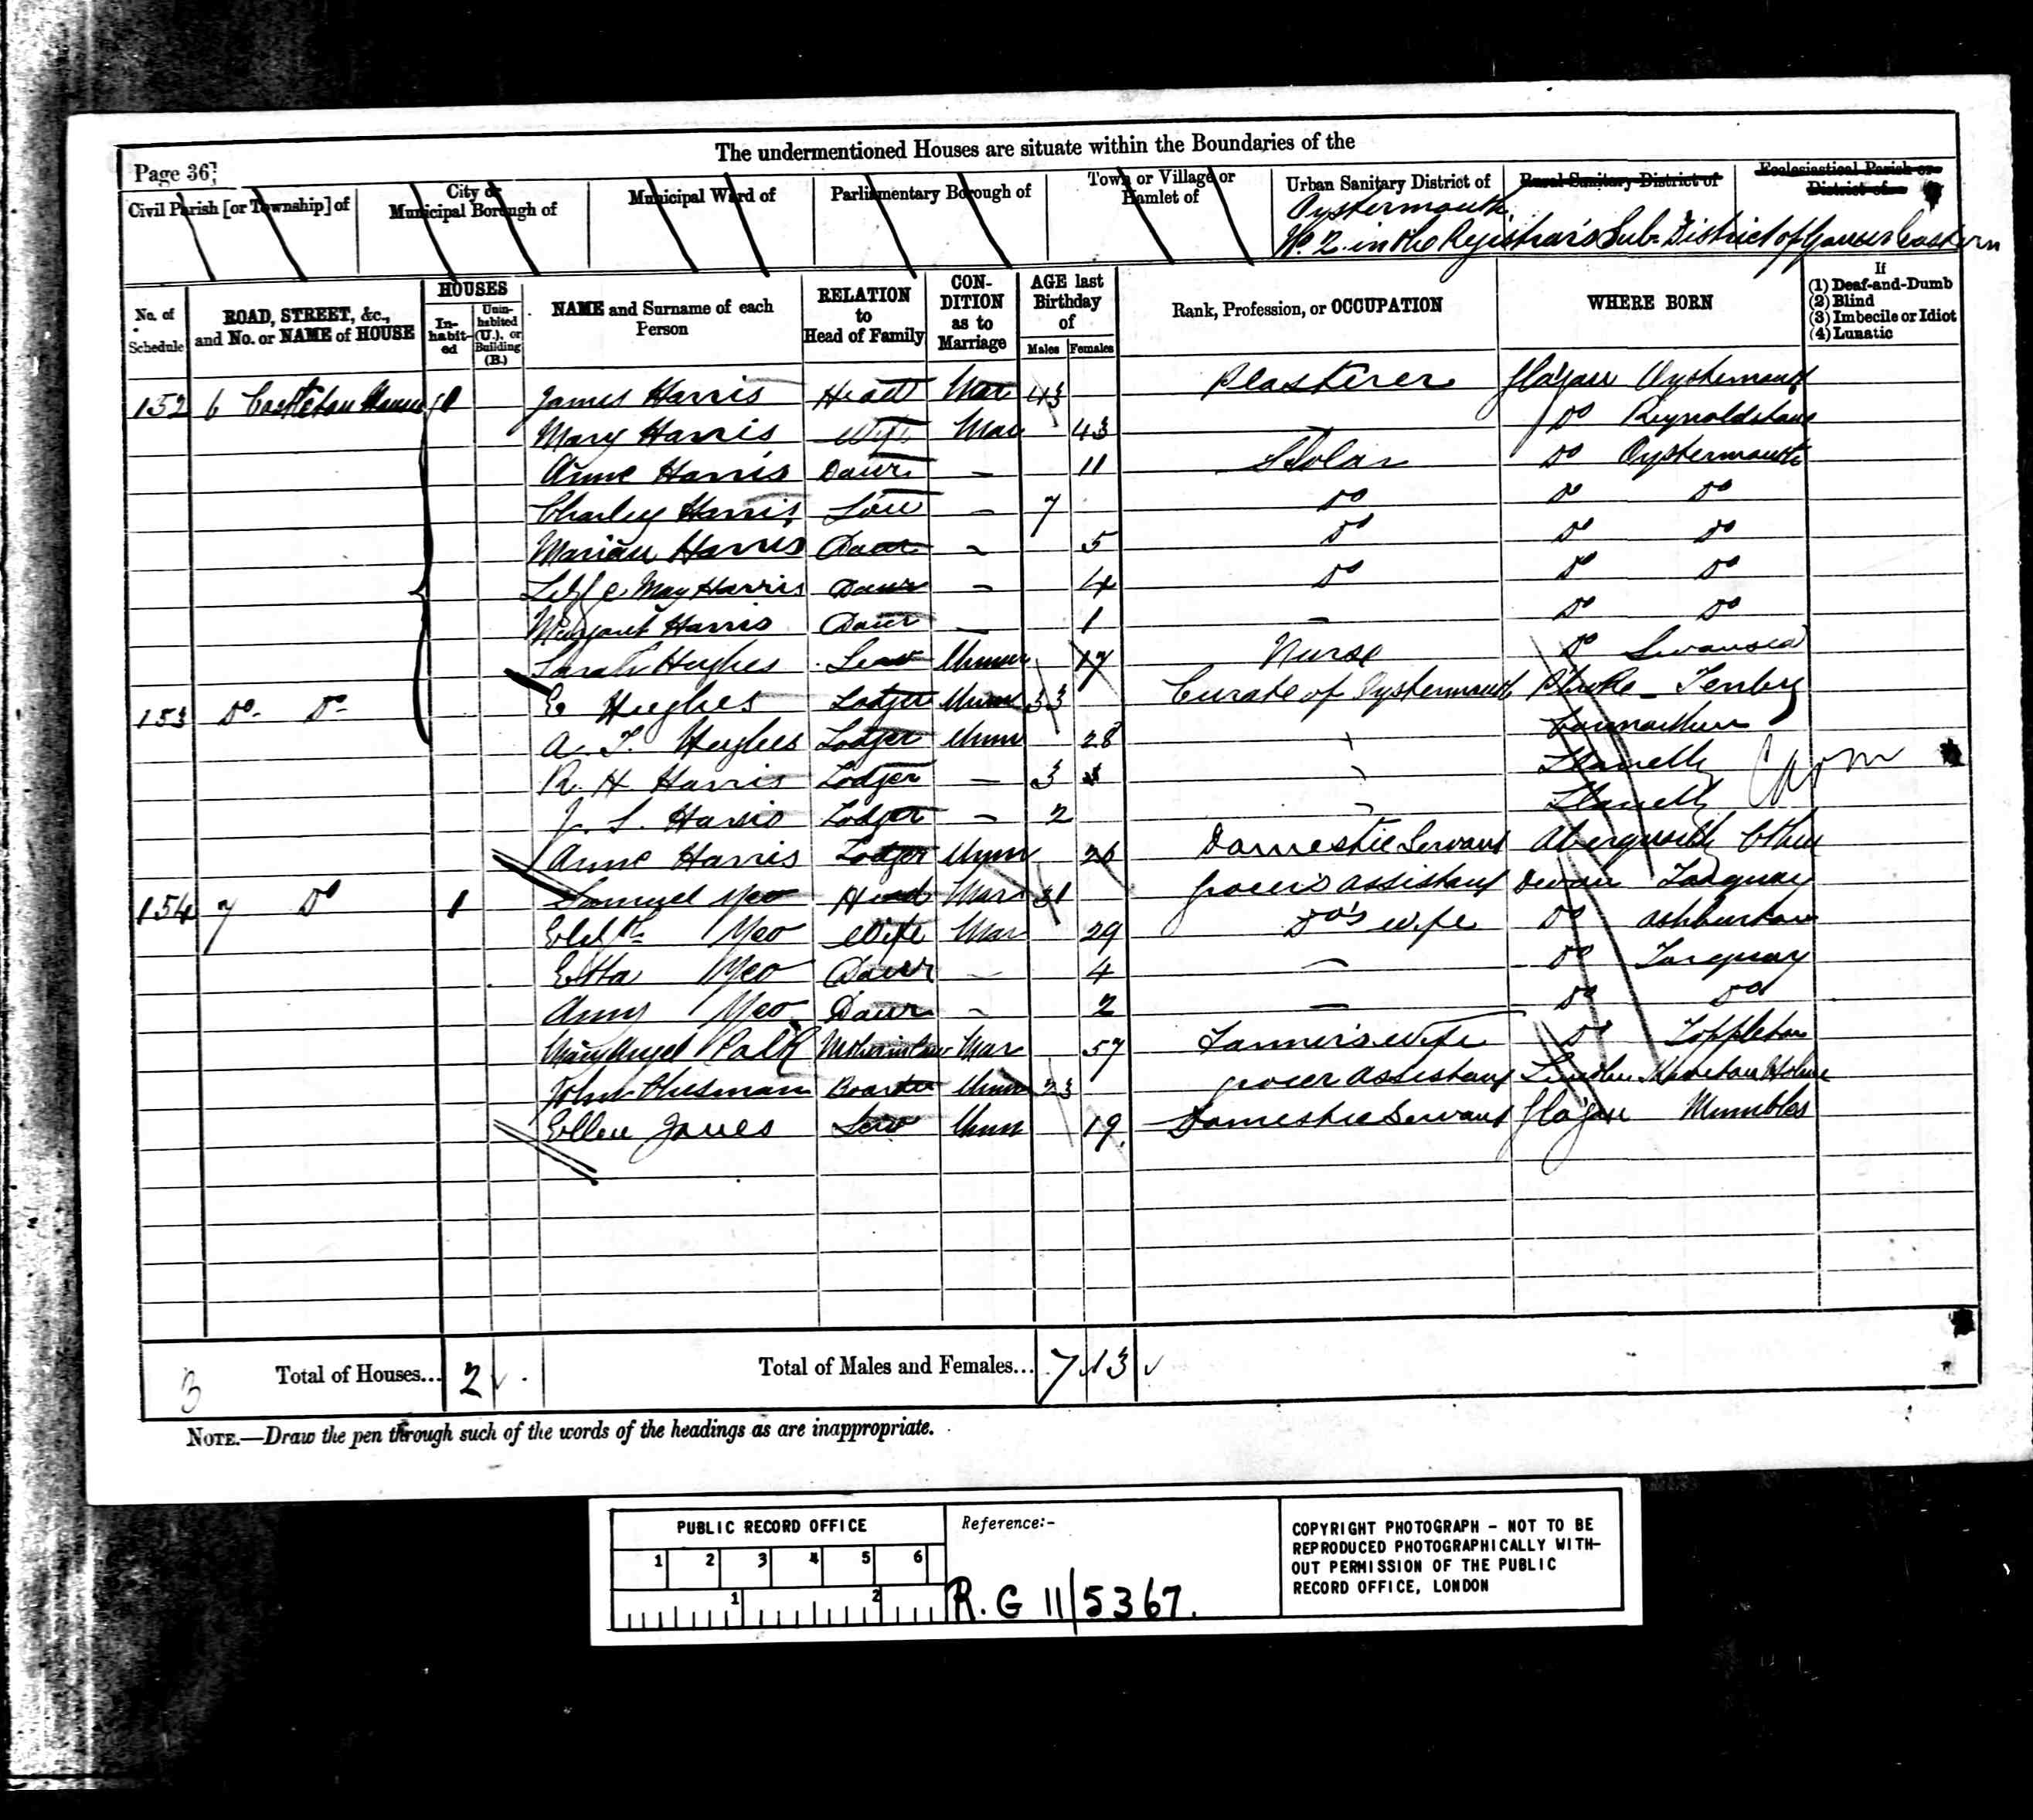 The undermentioned Houses are situate within the Boundaries of the
Page 36
Civil Parish [or Township] of
City or Municipal Borough of
Municipal Ward of
Parliamentary Borough of
Town or Village or Hamlet of
Urban Sanitary District of
Rural Sanitary District of
Ecclesiastical Parish or District of
Oystermouth
No. 2 in the Registrar's Sub-District of Gower Eastern
No. of Schedule
ROAD, STREET, &c., and No. or NAME of HOUSE
HOUSES
In-habit-ed
Unin-habited (U.), or Building (B.)
NAME and Surname of each Person
RELATION to Head of Family
CON-DITION as to Marriage
AGE last Birthday of
Males Females
Rank, Profession, or OCCUPATION
WHERE BORN
If
(1) Deaf-and-Dumb
(2) Blind
(3) Imbecile or Idiot
(4) Lunatic
152 6 Castleton 1 James Harris Head Mar 43 Plasterer Glagan Oystermouth
Mary Harris Wife Mar 43 Do Reynoldstone
Anne Harris Daur - 11 Sholar Do Oystermouth
Charley Harris Son - 7 Do Do Do
Marian Harris Daur - 5 Do Do Do
May Harris Daur - 4 Do Do Do
Margaret Harris Daur - 1 - Do Do
Sarah Hughes Serv Unmar 17 Nurse Do Swansea
153 Do Do E Hughes Lodger Unm 33 Curate of Oystermouth Tenby
A. T. Hughes Lodger Unm 28
R. H. Harris Lodger - 3 Llanelly
J. S. Harris Lodger - 2 Llanelly
Anne Harris Lodger Unm 26 Domestic Servant Abergwilly
154 7 Do 1 Samuel Yeo Head Mar 31 Grocer's assistant Devon Torquay
Elizth Yeo Wife Mar 29 Do's wife Do Ashburton
Etta Yeo Daur - 4 - Do Torquay
Amy Yeo Daur - 2 - Do Do
Palk Motherinlaw Mar 57 wife Do
John Boarder Unm 23 grocer assistant
Ellen Jones Serv Unm 19 Domestic Servant Glagan Mumbles
3 Total of Houses... 2
Total of Males and Females... 7 13
NOTE.—Draw the pen through such of the words of the headings as are inappropriate.
PUBLIC RECORD OFFICE
1 2 3 4 5 6
1 2
Reference:-
R.G 11/5367.
COPYRIGHT PHOTOGRAPH - NOT TO BE
REPRODUCED PHOTOGRAPHICALLY WITH-
OUT PERMISSION OF THE PUBLIC
RECORD OFFICE, LONDON